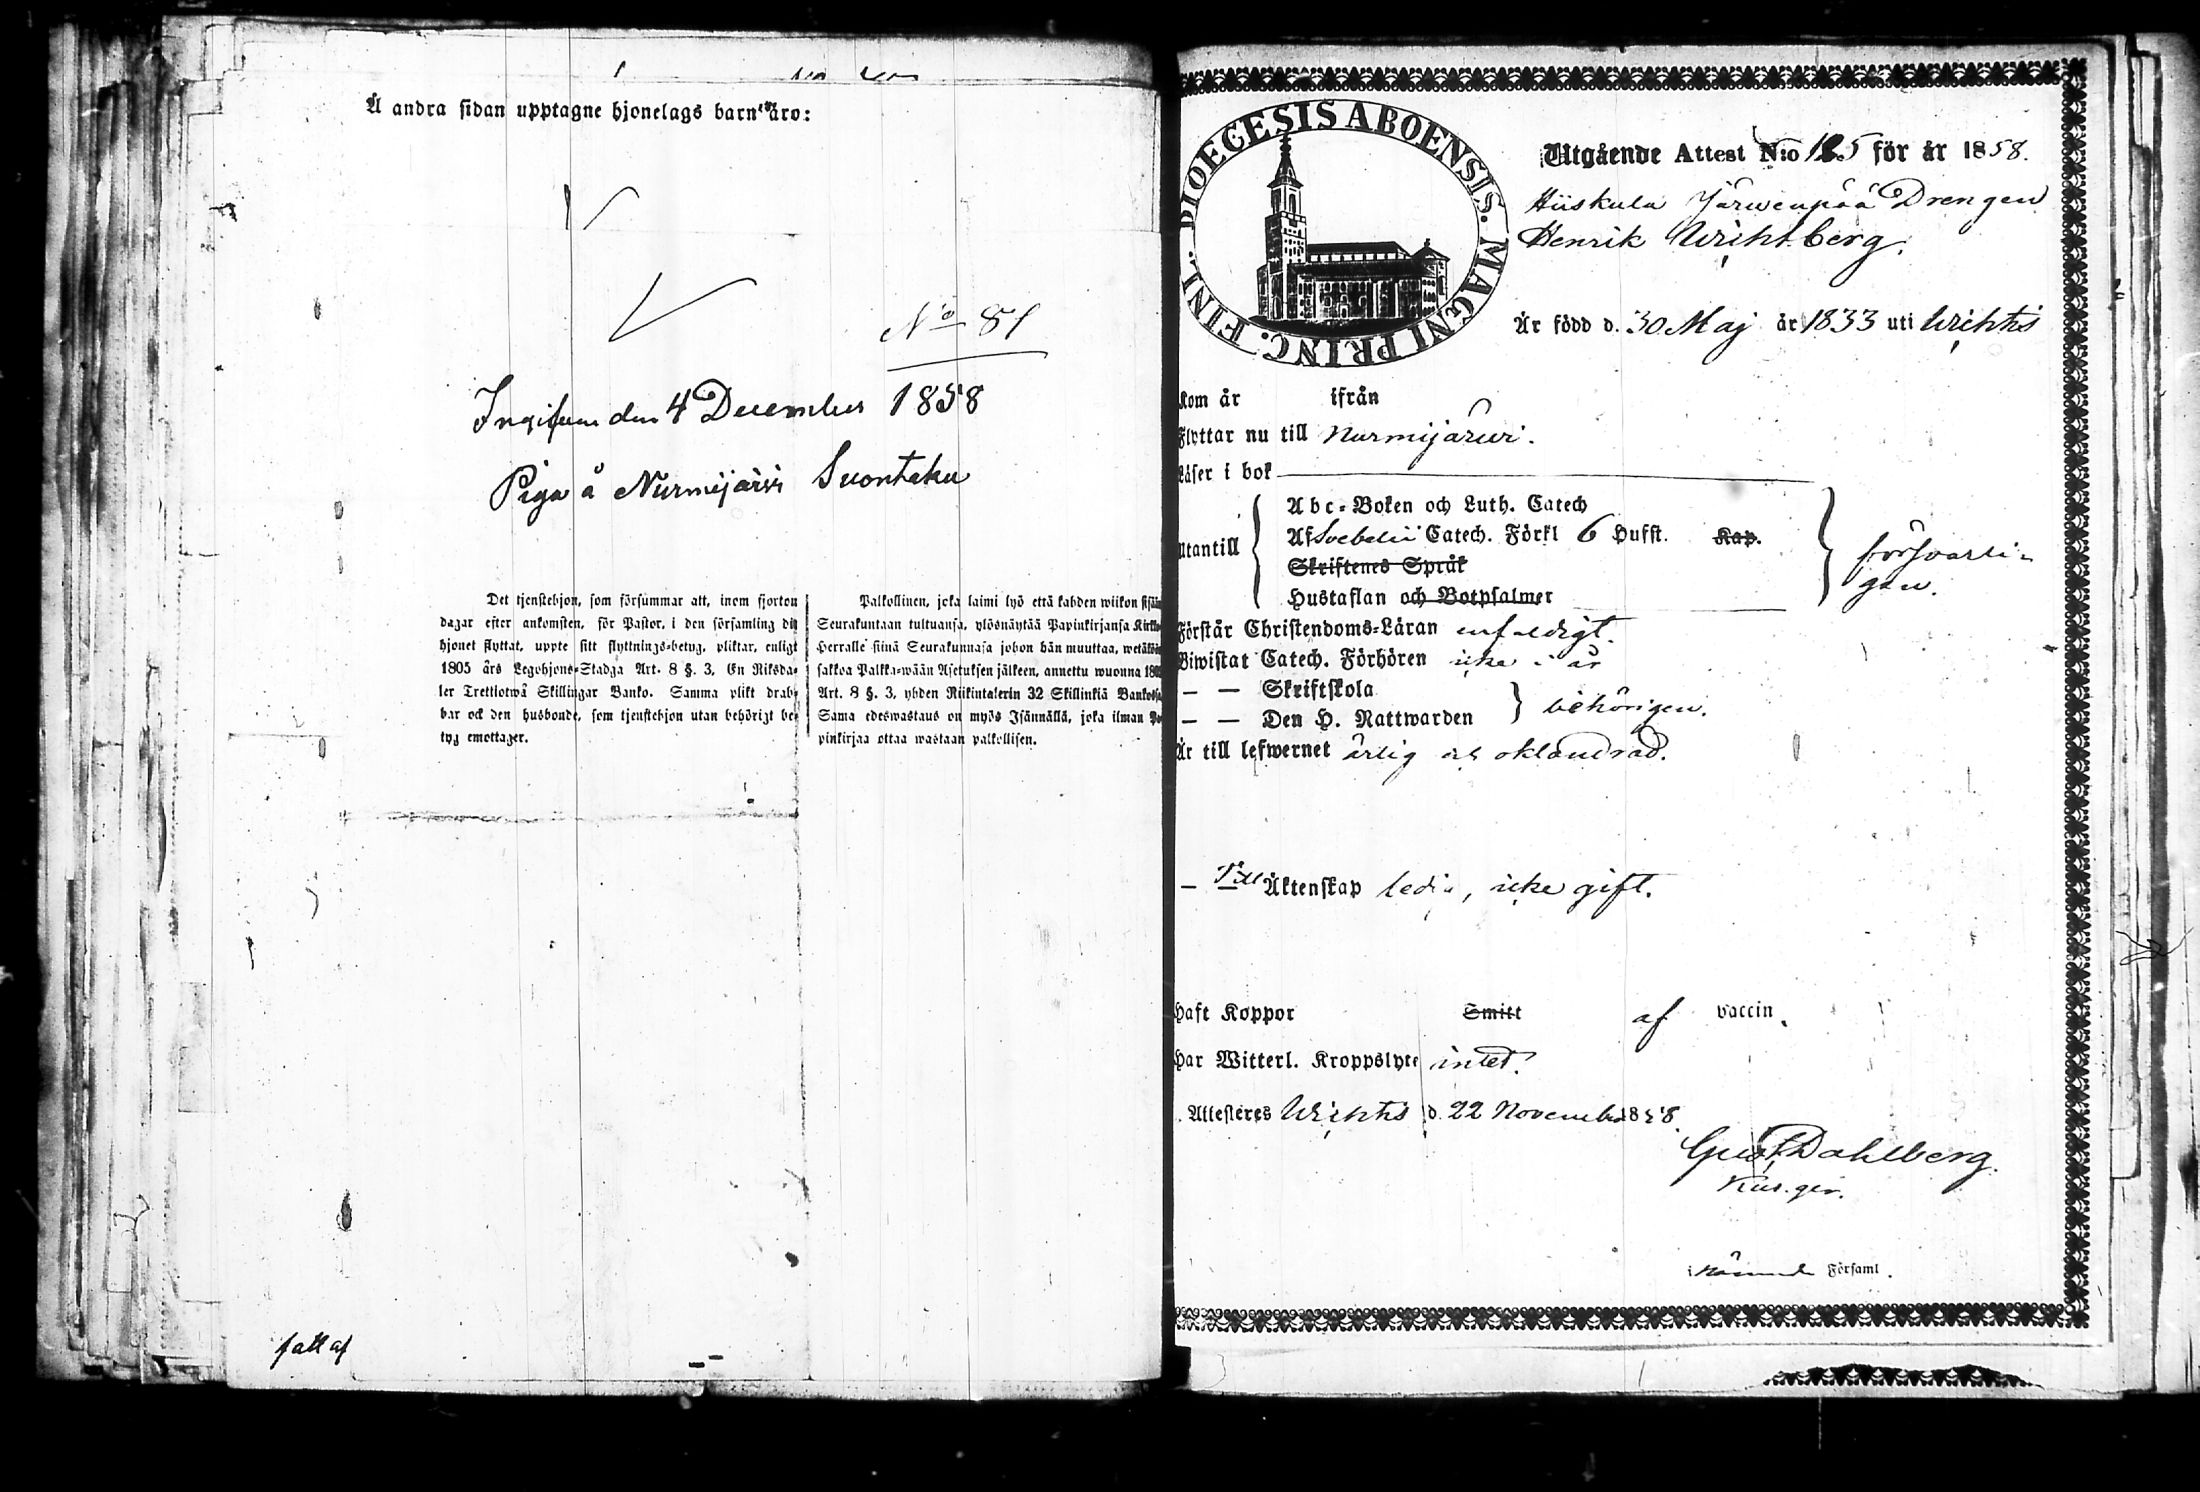 Å andra sidan upptagne hjonelags barn äro:
No 81
Ingifven den 4 December 1858
Piga å Nurmijärvi Suontaka
Det tjenstehjon, som försummar att, inom fjorton
dagar efter ankomsten, för Pastor, i den församling dit
hjonet flyttat, uppte sitt flyttnings-betyg, pliktar, enligt
1805 års Legohjons-Stadga Art. 8 §. 3, En Riksda-
ler Trettiotwå Skillingar Banko. Samma plikt drab-
bar ock den husbonde, som tjenstehjon utan behörigt be-
tyg emottager.
Palkollinen, joka laimi lyö että kahden wiikon sisään
Seurakuntaan tultuansa, ylösnäytää Papinkirjansa Kirkko-
Herralle siinä Seurakunnasa johon hän muuttaa, wetäköön
sakkoa Palkka-wään Asetuksen jälkeen, annettu wuonna 1805
Art. 8 §. 3, yhden Riikintalerin 32 Skillinkiä Bankosa
Sama edeswastaus on myös Isännällä, joka ilman Pa-
pinkirjaa ottaa wastaan palkollisen.
fatt af
DIOECESIS ABOENSIS. MAGNI PRINC. FINL.
Utgående Attest N:o 125 för år 1858.
Hiiskula Järwenpää Drengen
Henrik Wichtberg.
Är född d. 30 Maj år 1833 uti Wichtis
Kom år ifrån
Flyttar nu till Nurmijärwi.
Läser i bok
Abc-Boken och Luth. Catech
Utantill Af Svebelii Catech. Förkl 6 Hufst. Kap.
Skriftenes Språk
Hustaflan och Botpsalmer
försvarli-
gen.
Förstår Christendoms-Läran enfaldigt.
Biwistat Catech. Förhören icke i år
— — Skriftskola
— — Den H. Nattwarden behörigen.
Är till lefwernet ärlig och oklandrad.
— Till Äktenskap ledig, icke gift.
Haft Koppor Smitt af vaccin.
Har Witterl. Kroppslyte intet.
Attesteres Wichtis d. 22 November 1858.
Gust Dahlberg.
i Församl.